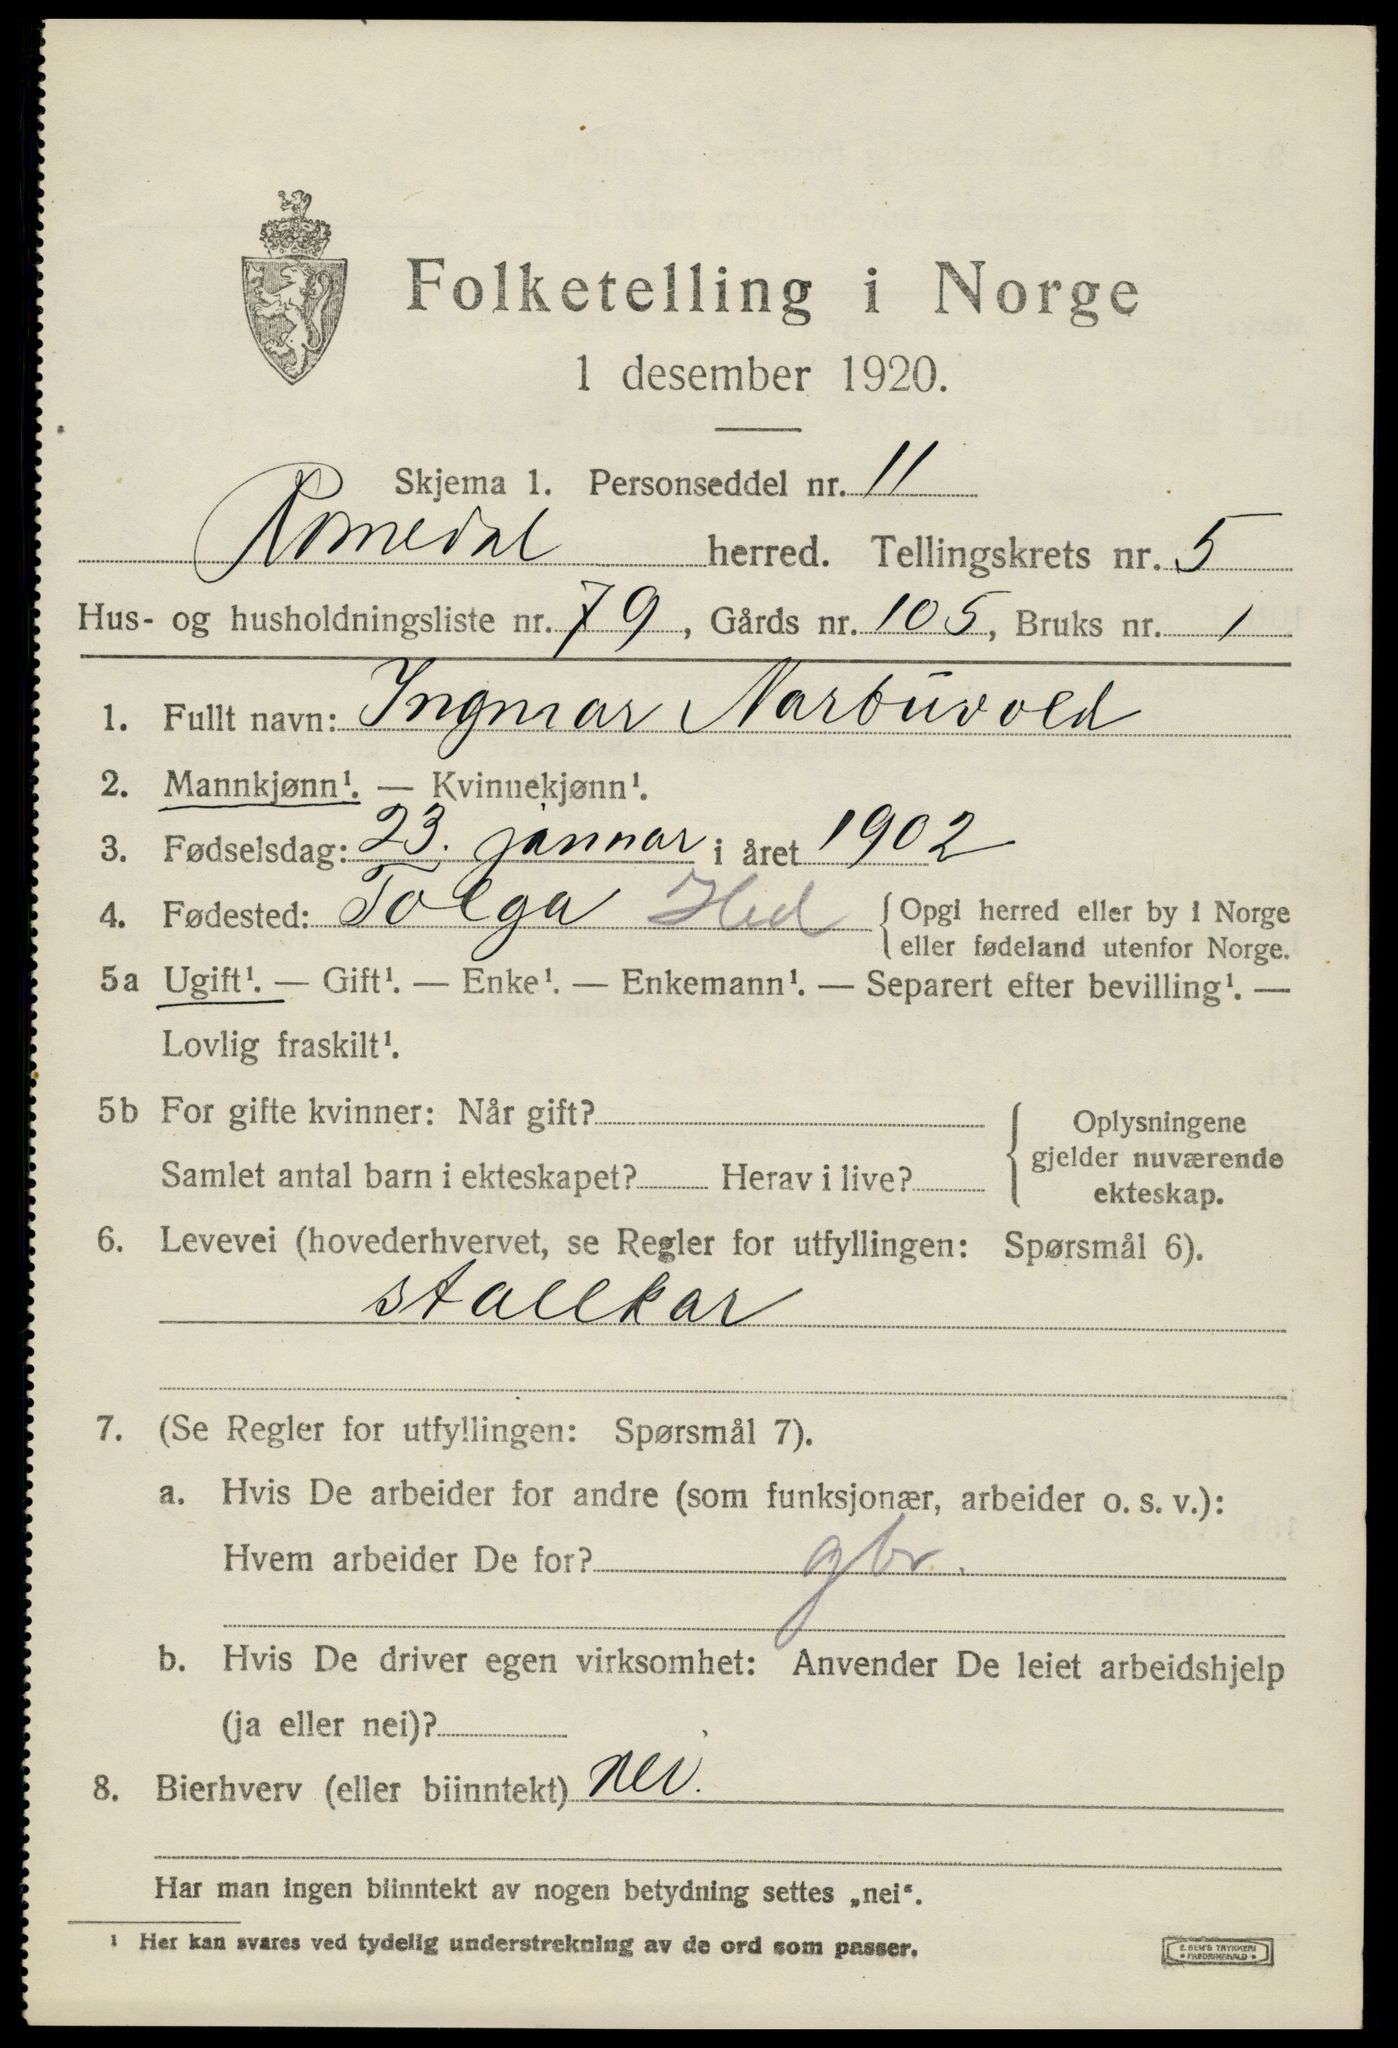 Folketelling i Norge
1 desember 1920.
Skjema 1. Personseddel nr. 11
Romedal herred. Tellingskrets nr. 5
Hus- og husholdningsliste nr. 79, Gårds nr. 105, Bruks nr. 1
1. Fullt navn: Ingmar Narbuvold
2. Mannkjønn¹. — Kvinnekjønn¹.
3. Fødselsdag: 23. januar i året 1902
4. Fødested: Tolga Hed { Opgi herred eller by i Norge
eller fødeland utenfor Norge.
5a Ugift¹. — Gift¹. — Enke¹. — Enkemann¹. — Separert efter bevilling¹. —
Lovlig fraskilt¹.
5b For gifte kvinner: Når gift? { Oplysningene
gjelder nuværende
Samlet antal barn i ekteskapet? Herav i live?
ekteskap.
6. Levevei (hovederhvervet, se Regler for utfyllingen: Spørsmål 6).
stallkar
7. (Se Regler for utfyllingen: Spørsmål 7).
a. Hvis De arbeider for andre (som funksjonær, arbeider o. s. v.):
Hvem arbeider De for? gbr.
b. Hvis De driver egen virksomhet: Anvender De leiet arbeidshjelp
(ja eller nei)?
8. Bierhverv (eller biinntekt) nei.
Har man ingen biinntekt av nogen betydning settes „nei“.
¹ Her kan svares ved tydelig understrekning av de ord som passer.
E. SEM'S TRYKKERI
FREDRIKSHALD